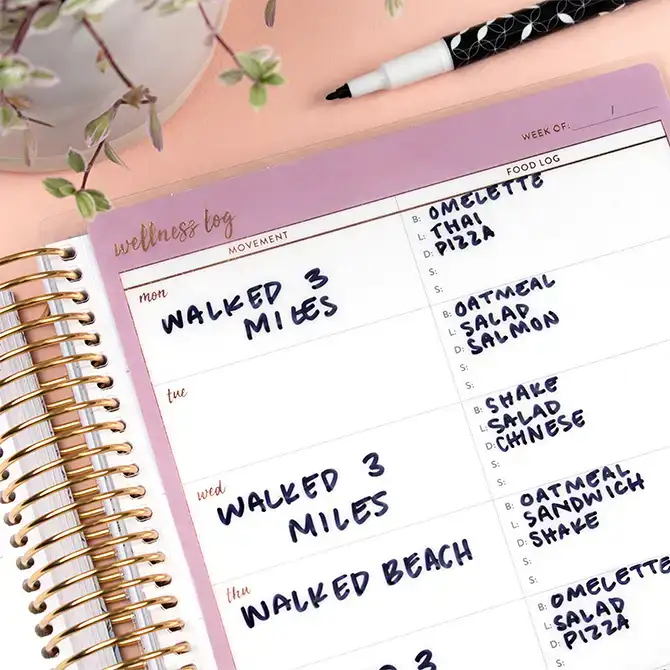 WEEK OF: /
wellness log
MOVEMENT
FOOD LOG
mon
WALKED 3
MILES
B: OMELETTE
L: THAI
D: PIZZA
S:
S:
tue
B: OATMEAL
L: SALAD
D: SALMON
S:
S:
wed
WALKED 3
MILES
B: SHAKE
L: SALAD
D: CHINESE
S:
S:
thu
WALKED BEACH
B: OATMEAL
L: SANDWICH
D: SHAKE
S:
S:
3
B: OMELETTE
L: SALAD
D: PIZZA
S: